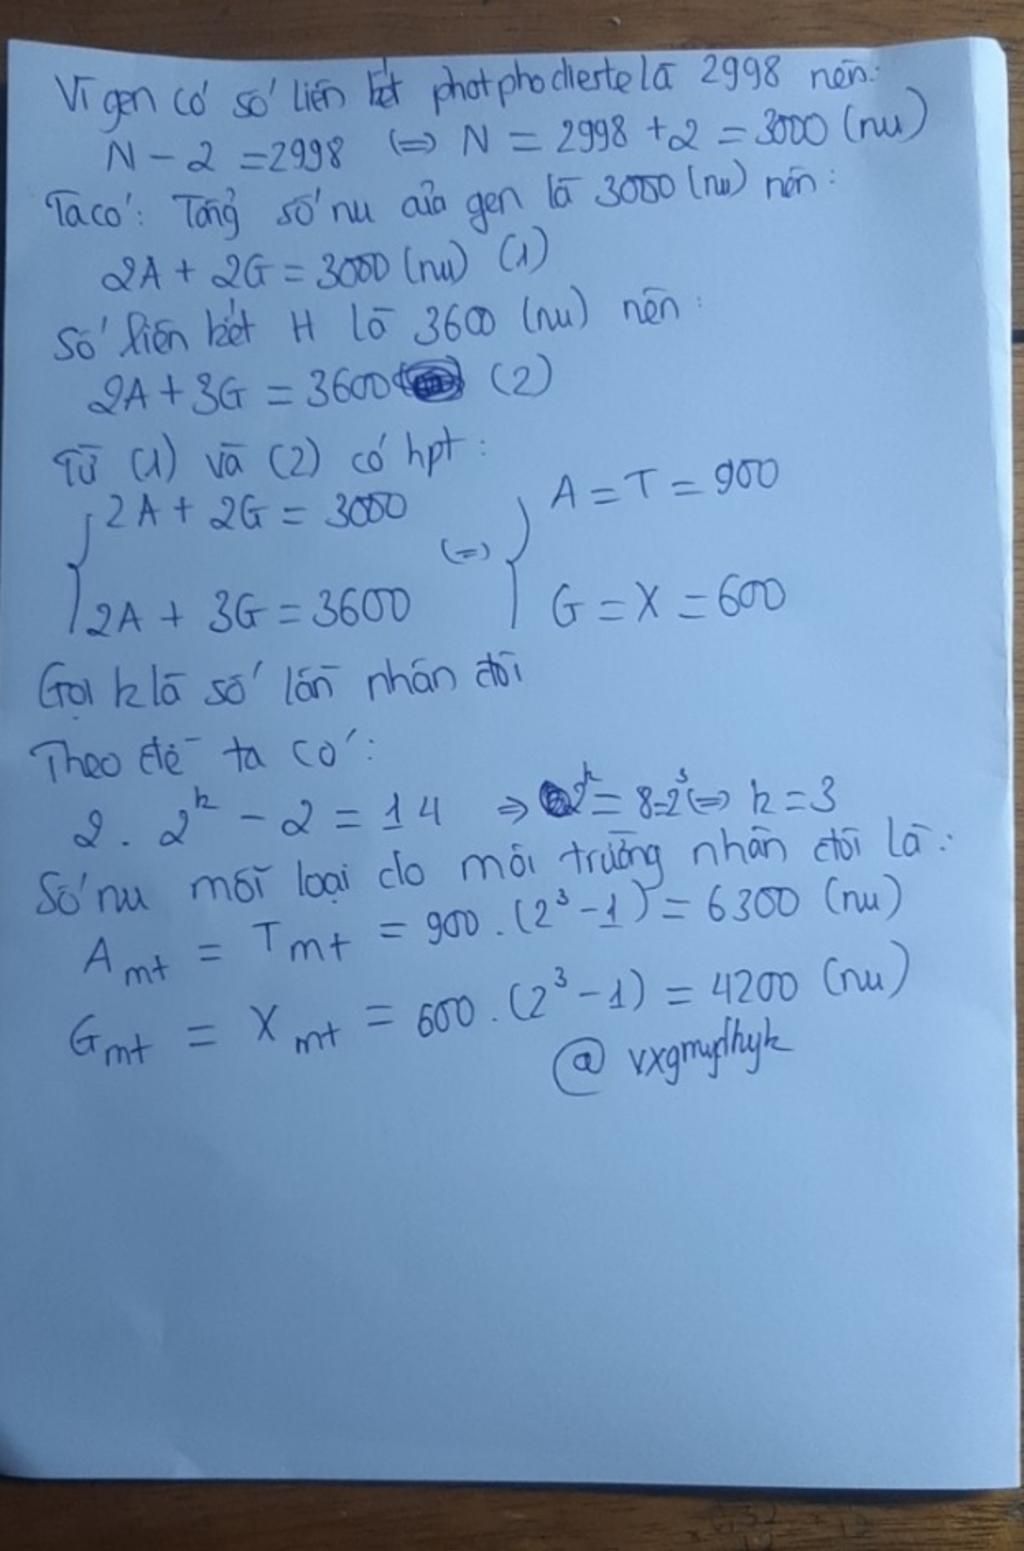 Vì gen có số liên kết photphodieste là 2998 nên:
N - 2 = 2998 (=) N = 2998 + 2 = 3000 (nu)
Ta có: Tổng số nu của gen là 3000 (nu) nên:
2A + 2G = 3000 (nu) (1)
Số liên kết H là 3600 (nu) nên:
2A + 3G = 3600 (2)
Từ (1) và (2) có hpt:
2A + 2G = 3000 (=) A = T = 900
2A + 3G = 3600 G = X = 600
Gọi k là số lần nhân đôi
Theo đề ta có:
2 . 2^k - 2 = 14 => 2^k = 8 = 2^3 (=) k = 3
Số nu mỗi loại do môi trường nhân đôi là:
A mt = T mt = 900 . (2^3 - 1) = 6300 (nu)
G mt = X mt = 600 . (2^3 - 1) = 4200 (nu)